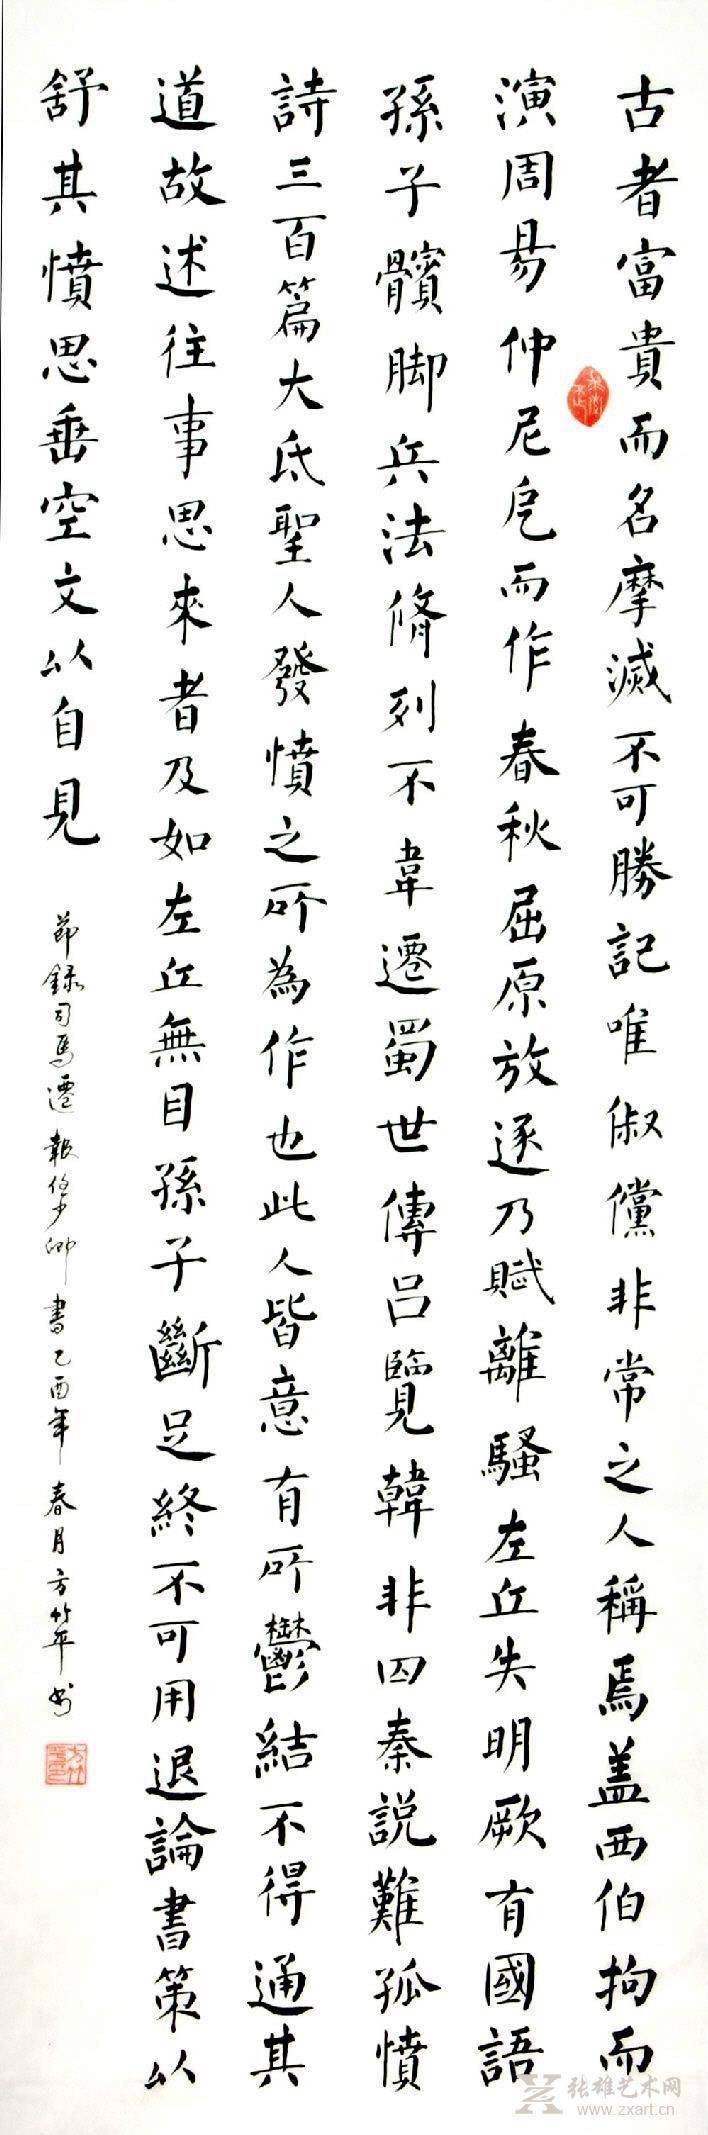 古者富貴而名摩滅不可勝記唯俶儻非常之人稱焉盖西伯拘而
演周易仲尼戹而作春秋屈原放逐乃賦離騷左丘失明厥有國語
孫子髕脚兵法脩列不韋遷蜀世傳吕覽韓非囚秦説難孤憤
詩三百篇大氐聖人發憤之所為作也此人皆意有所鬱結不得通其
道故述往事思來者及如左丘無目孫子斷足終不可用退論書策以
舒其憤思垂空文以自見
節錄司馬遷報任少卿書乙酉年春月方竹平书
张雄艺术网
www.zxart.cn